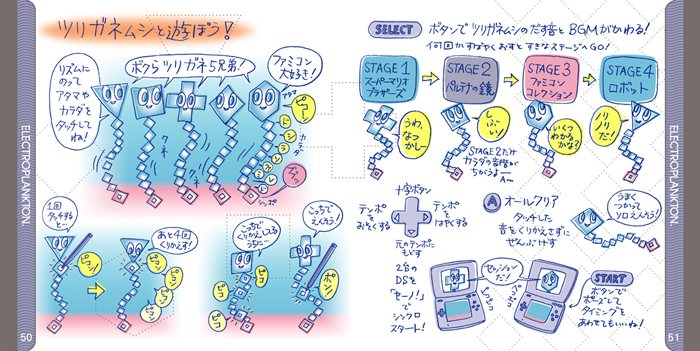 ツリガネムシと遊ぼう!
リズムに
のって
アタマや
カラダを
タッチして
ね!
ボクらツリガネ5兄弟!
ファミコン
大好き!
アタマ
ピコー!
カラダ
ド
シ
ラ
ソ
ファ
ミ
レ
ド
シッポ
クネ
クネ
1回
タッチする
と…
ピコン!
あと4回
くりかえす!
ピコン
ピコン
ピコン
ピコン
こっちで
くりかえしてる
うちに…
ピコ
ピコ
ピコ
こっちで
えんそう!
ピコ
ポン!
50
ELECTROPLANKTON
SELECT ボタンでツリガネムシのだす音とBGMがかわる!
何回かすばやくおすとすきなステージへGO!
STAGE1
スーパーマリオ
ブラザーズ
STAGE2
パルテナの鏡
STAGE3
ファミコン
コレクション
STAGE4
ロボット
うわ、
なつ
かしー
しぶい!
STAGE2だけ
カラダの音階が
ちがうよー
Am
いくつ
わかる
かな?
ノリ
ノリ
だ!
十字ボタン
テンポ
を
おそくする
テンポ
を
はやくする
元のテンポに
もどす
A オールクリア
タッチした
音をくりかえさずに
ぜんぶけす
うまく
つかって
ソロえんそう!
2台の
DSを
「セーノ!」
で
シンクロ
スタート!
セッション
だー!
START
ボタンで
ポーズして
タイミングを
あわせてもいいね!
51
ELECTROPLANKTON